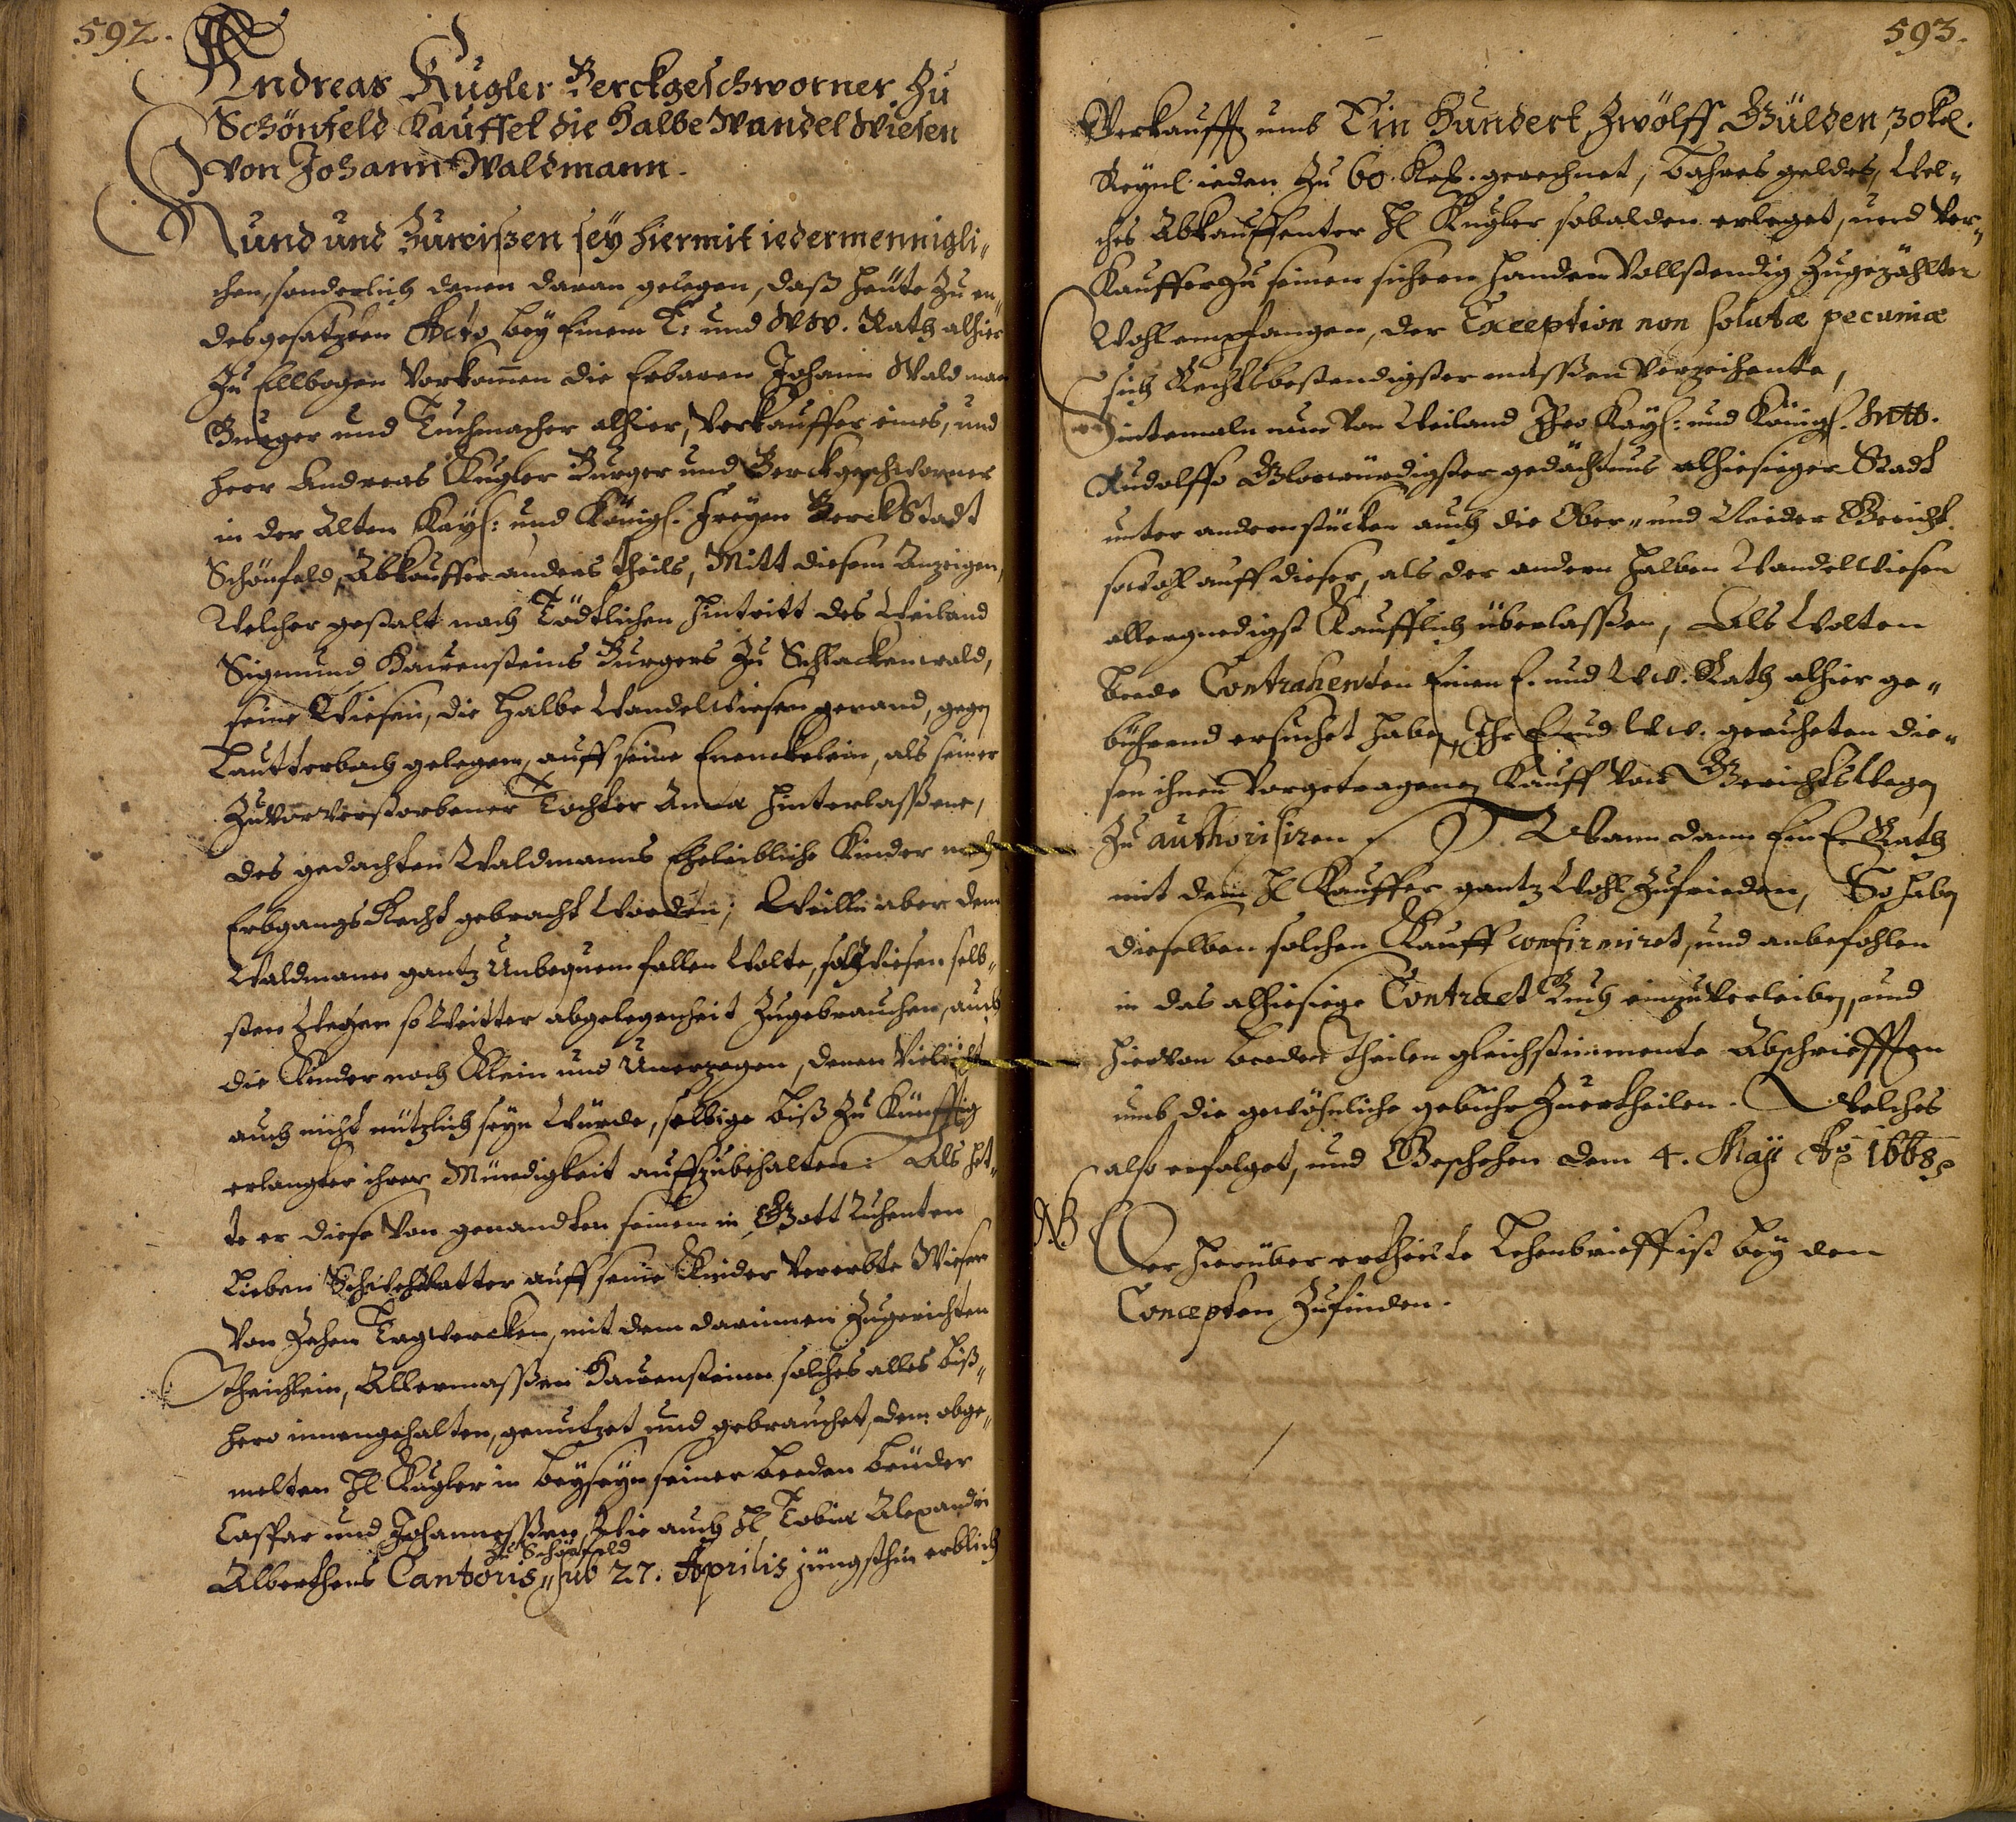 592.
Andreas Kugler Berckgeschworner zu
Schönfeld Kauffet die Halbe Wandel Wiesen
von Johann Waldmann.
Kund und Zuwißen sey hiermit iedermennigli-
chen, sonderlich denen daran gelegen, daß heüte zu en-
desgesatzten Acto bey Einem E: und WW. Rath alhier
zu Ellbogen Vorkomen die Erbaren Johann Waldman
Burger und Tuchmacher alhier, Verkauffer eines, und
Herr Andreas Kugler Burger und Berckgeschworner
in der Alten Kayß: und Königß. Freyen BerckStadt
Schönfeld, Abkauffer anders theils, Mitt diesem Anzeigen,
Welcher gestalt nach Tödtlichen hintritt des Weiland
Sigmund Hauensteins Burgers zu Schlackenwald,
seine Wiesen, die Halbe Wandelwiesen genand, gegen
Lautterbach gelegen, auff seine Enenckelein, als seiner
zuvor verstorbener Tochter Anna hinterlaßene,
des gedachten Waldmanns Eheleibliche Kinder nach
Erbgangs Recht gebracht Worden; Weiln aber dem
Waldmann gantz Unbequem fallen Wolte, solche Wiesen selb-
sten Wegen so Weitter abgelegenheit Zugebrauchen, auch
die Kinder noch Klein und Unerzogen, denen Vielicht
auch nicht nützlich seyn Würde, selbige biß zu Künfftig
erlangter ihrer Mündigkeit auffzubehalten: Als het-
te er diese Von genandten seinem in Gott Ruhenten
Lieben Schwehrvatter auff seine Kinder Vererbte Wiesen
Von Zehen Tagwercken, mit dem darinnen Zugerichten
Theichlein, Allermaßen Hauenstein solches alles biß-
hero innengehalten, genutzet und gebrauchet, dem obge-
melten H: Kugler in beyseyn seiner beeden brüder
Caspar und Johanneßen, Wie auch H: Tobiæ Alexandri
zu Schönfeld
Alberthens Cantoris, sub 27. Aprilis jüngsthin erblich
593.
Verkaufft umb Ein Hundert Zwölff Gülden, 30 kr.
Reynl. ieden zu 60. Kr. gerechnet, Bahres geldes, Wel-
ches Abkauffenter H: Kugler sobalden erleget, und Ver-
Kauffer zu seinen sichern handen Vollstendig Zugezählter
Wohl empfangen, der Exception non solutæ pecuniæ
sich Rechtsbestendigster maßen Verzeihente,
Sintemaln nun Von Weiland Ihro Kayß: und Königß. Mtt.
Rudolffo Glorwürdigster gedächtnus alhiesieger Stadt
unter andern stücken auch die Ober- und Nieder Gericht
sowohl auff dieser, als der andern halben Wandelwiesen
allergnedigst Kaufflich überlaßen, Als Wolten
beede Contrahenten Einen E. und WW. Rath alhier ge-
bührend ersuchet haben, Ihr E. und WW. geruheten die-
sen ihnen Vorgetragenen Kauff Von Gerichtswegen
zu authorisiren. Wann dann Ein E. Rath
mit dem H: Kauffer gantz Wohl Zufrieden, So haben
dieselben solchen Kauff confirmiret, und anbefohlen
in das alhiesiege Contract Buch einzuverleiben, und
hiervon beeden Theilen gleichstimmente Abschriefften
umb die gewöhnliche gebühr Zuertheilen. Welches
also erfolget, und Geschehen den 4. Maÿ Aõ. 1668.
NB
Der hierüber ertheilte Lehenbrieff ist bey den
Concepten Zufinden.